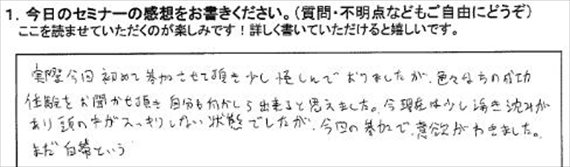 1. 今日のセミナーの感想をお書きください。(質問・不明点などもご自由にどうぞ)
ここを読ませていただくのが楽しみです!詳しく書いていただけると嬉しいです。
実際今回初めて参加させて頂き少し怪しんでおりましたが、色々な方の成功
体験をお聞かせ頂き自分も何かしら出来ると思えました。今現在は少し浮き沈みが
あり頭の中がスッキリしない状態でしたが、今回の参加で、意欲がわきました。
まだ という